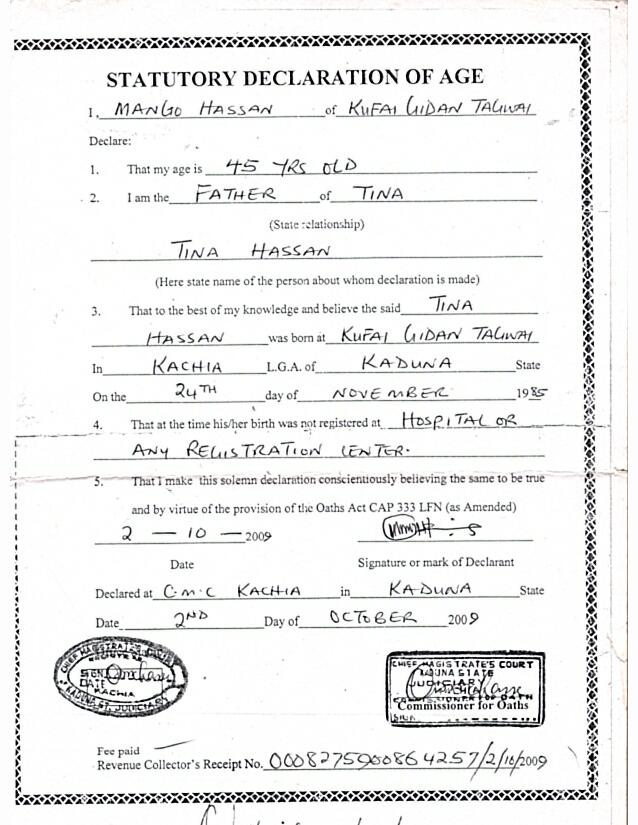 STATUTORY DECLARATION OF AGE
I, MANGO HASSAN of KUFAI GIDAN TAGWAI
Declare:
1. That my age is 45 YRS OLD
2. I am the FATHER of TINA
(State relationship)
TINA HASSAN
(Here state name of the person about whom declaration is made)
3. That to the best of my knowledge and believe the said TINA
HASSAN was born at KUFAI GIDAN TAGWAI
In KACHIA L.G.A. of KADUNA State
On the 24TH day of NOVEMBER 1985
4. That at the time his/her birth was not registered at HOSPITAL OR
ANY REGISTRATION CENTER.
5. That I make this solemn declaration conscientiously believing the same to be true
and by virtue of the provision of the Oaths Act CAP 333 LFN (as Amended)
2 — 10 — 2009
Date Signature or mark of Declarant
Declared at C.M.C KACHIA in KADUNA State
Date 2ND Day of OCTOBER 2009
CHIEF MAGISTRATE'S COURT
SIGN
DATE
KACHIA
KADUNA ST. JUDICIARY
CHIEF MAGISTRATE'S COURT
KADUNA STATE
JUDICIARY
Commissioner for Oaths
SIGN
Fee paid —
Revenue Collector's Receipt No. 0008275900864257/2/10/2009